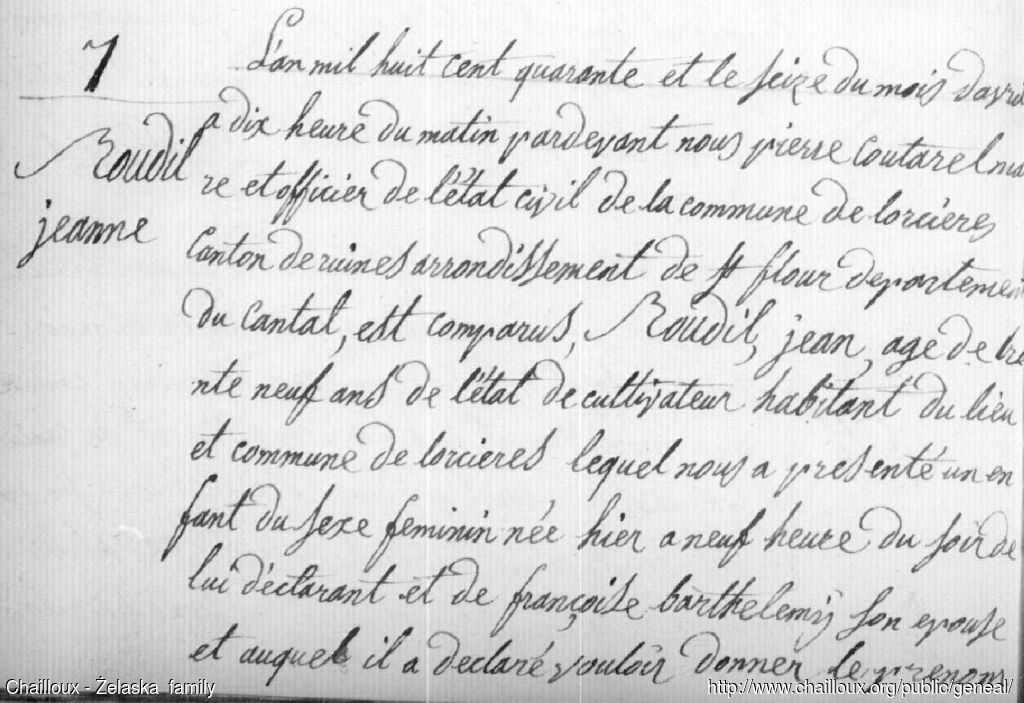 7
Roudil
jeanne
L'an mil huit cent quarante et le seize du mois d'avril
a dix heure du matin pardevant nous pierre Coutarel mai
re et officier de l'état civil de la commune de lorcieres
Canton de ruines arrondissement de st flour departement
du Cantal, est comparus, Roudil, jean, age de tre
nte neuf ans de l'état de cultivateur habitant du lieu
et commune de lorcieres lequel nous a presenté un en
fant du sexe feminin née hier a neuf heure du soir de
lui déclarant et de françoise barthelemÿ son epouse
et auquel il a declaré vouloir donner le prenom
Chailloux - Żelaska family
http://www.chailloux.org/public/geneal/